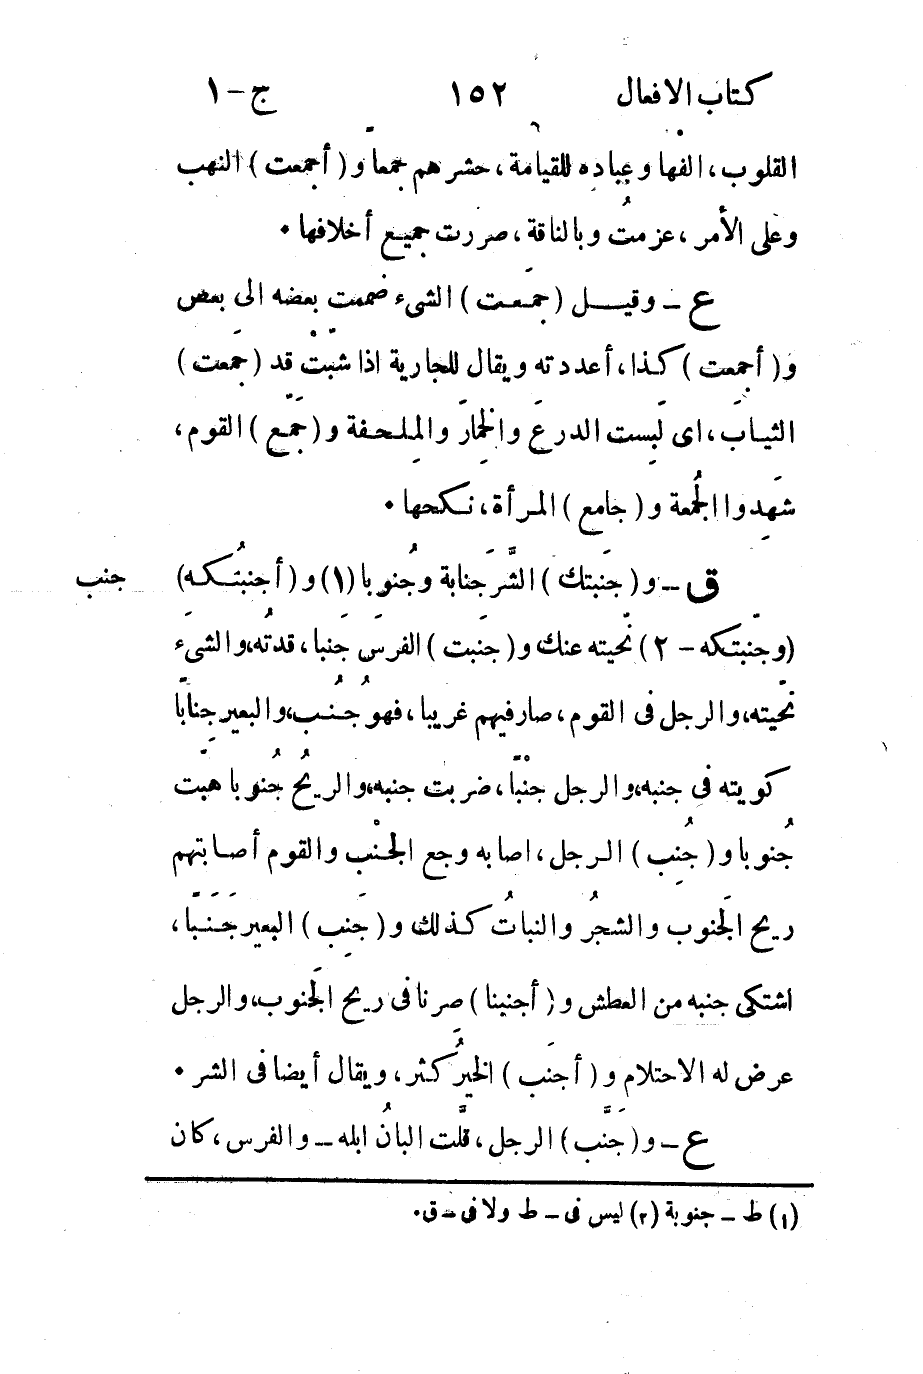 كتاب الافعال ١٥٢ ج – ١
القلوب، الفها وعباده للقيامة، حشرهم جمعا و( أجمعت ) النهب
وعلى الأمر، عزمتُ وبالناقة، صررت جميع أخلافها •
ع – وقيل ( جمَعت ) الشىء ضممت بعضه الى بعض
و( أجمعت ) كذا، أعددته ويقال للجارية اذا شبّتْ قد ( جمَعت )
الثيابَ، اى لَبِست الدرعَ والخِمارَ والمِلحفة و( جمّع ) القوم،
شَهِدوا الجُمعة و( جامع ) المرأة، نكحها •
ق – و( جنبتَك ) الشّرَ جنابة وجُنوبا (١) و( أجنبتُكه) جنب
(وجنّبتكه – ٢ ) نحّيته عنك و( جنَبت ) الفرسَ جَنبا، قدتُه، والشىءَ
نحّيته، والرجل فى القوم، صار فيهم غريبا، فهو جُنُب، والبعير جِنابّا
كويته فى جنبه، والرجل جنْبًا، ضربت جنبه، والريحُ جُنوبا هبّت
جُنوبا و( جُنِب ) الرجل، اصابه وجع الجنْب والقوم أصابتهم
ريح الجَنوب والشجرُ والنباتُ كذلك و( جَنِب ) البعير جَنَبًا،
اشتكى جنبه من العطش و( أجنبنا ) صرنا فى ريح الجَنوب، والرجل
عرض له الاحتلام و( أجنَب ) الخيرُ كثر، ويقال أيضا فى الشر •
ع – و( جَنَّب ) الرجل، قلّت البانُ ابله – والفرس، كان
(١) ط – جنوبة (٢) ليس فى – ط ولا فى – ق•